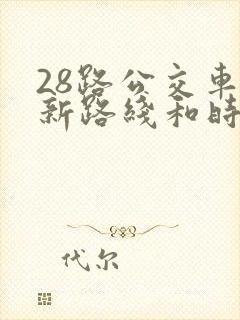 28路公交車
新路綫和時
代尔